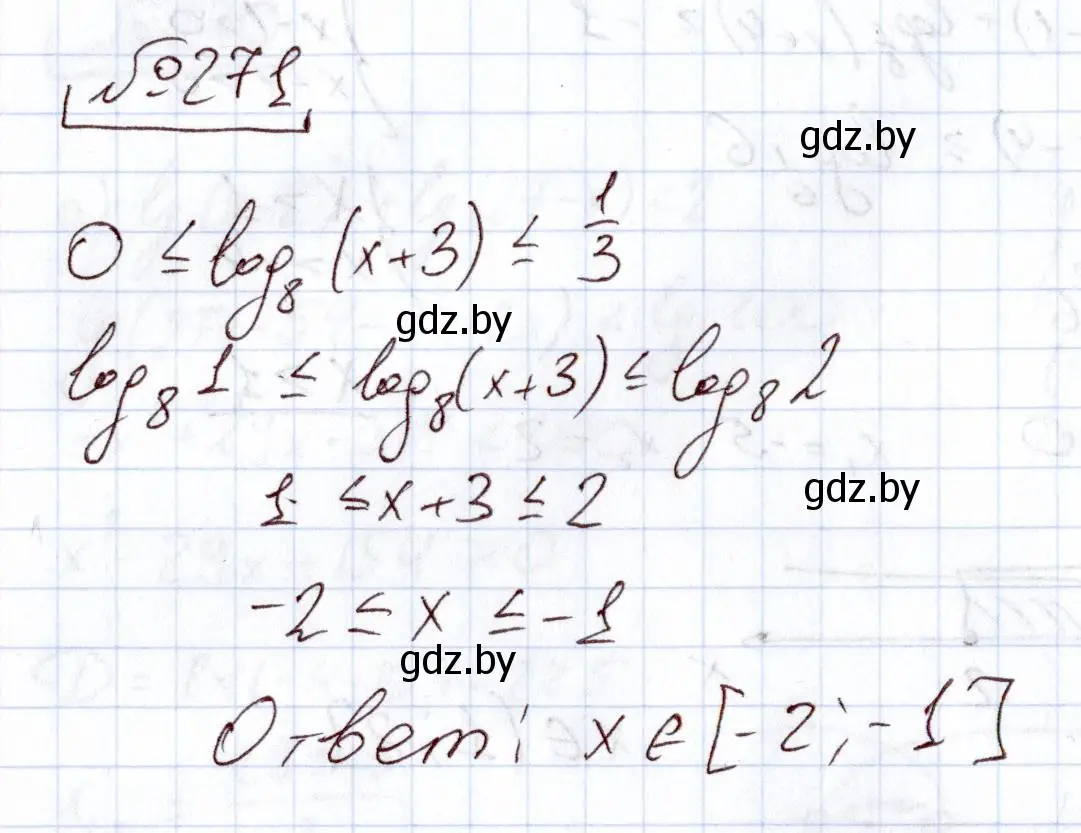 №271
gdz.by
0 ≤ log₈(x+3) ≤ 1/3
gdz.by
log₈1 ≤ log₈(x+3) ≤ log₈2
1 ≤ x+3 ≤ 2
gdz.by
-2 ≤ x ≤ -1
gdz.by
Ответ: x ∈ [-2; -1]